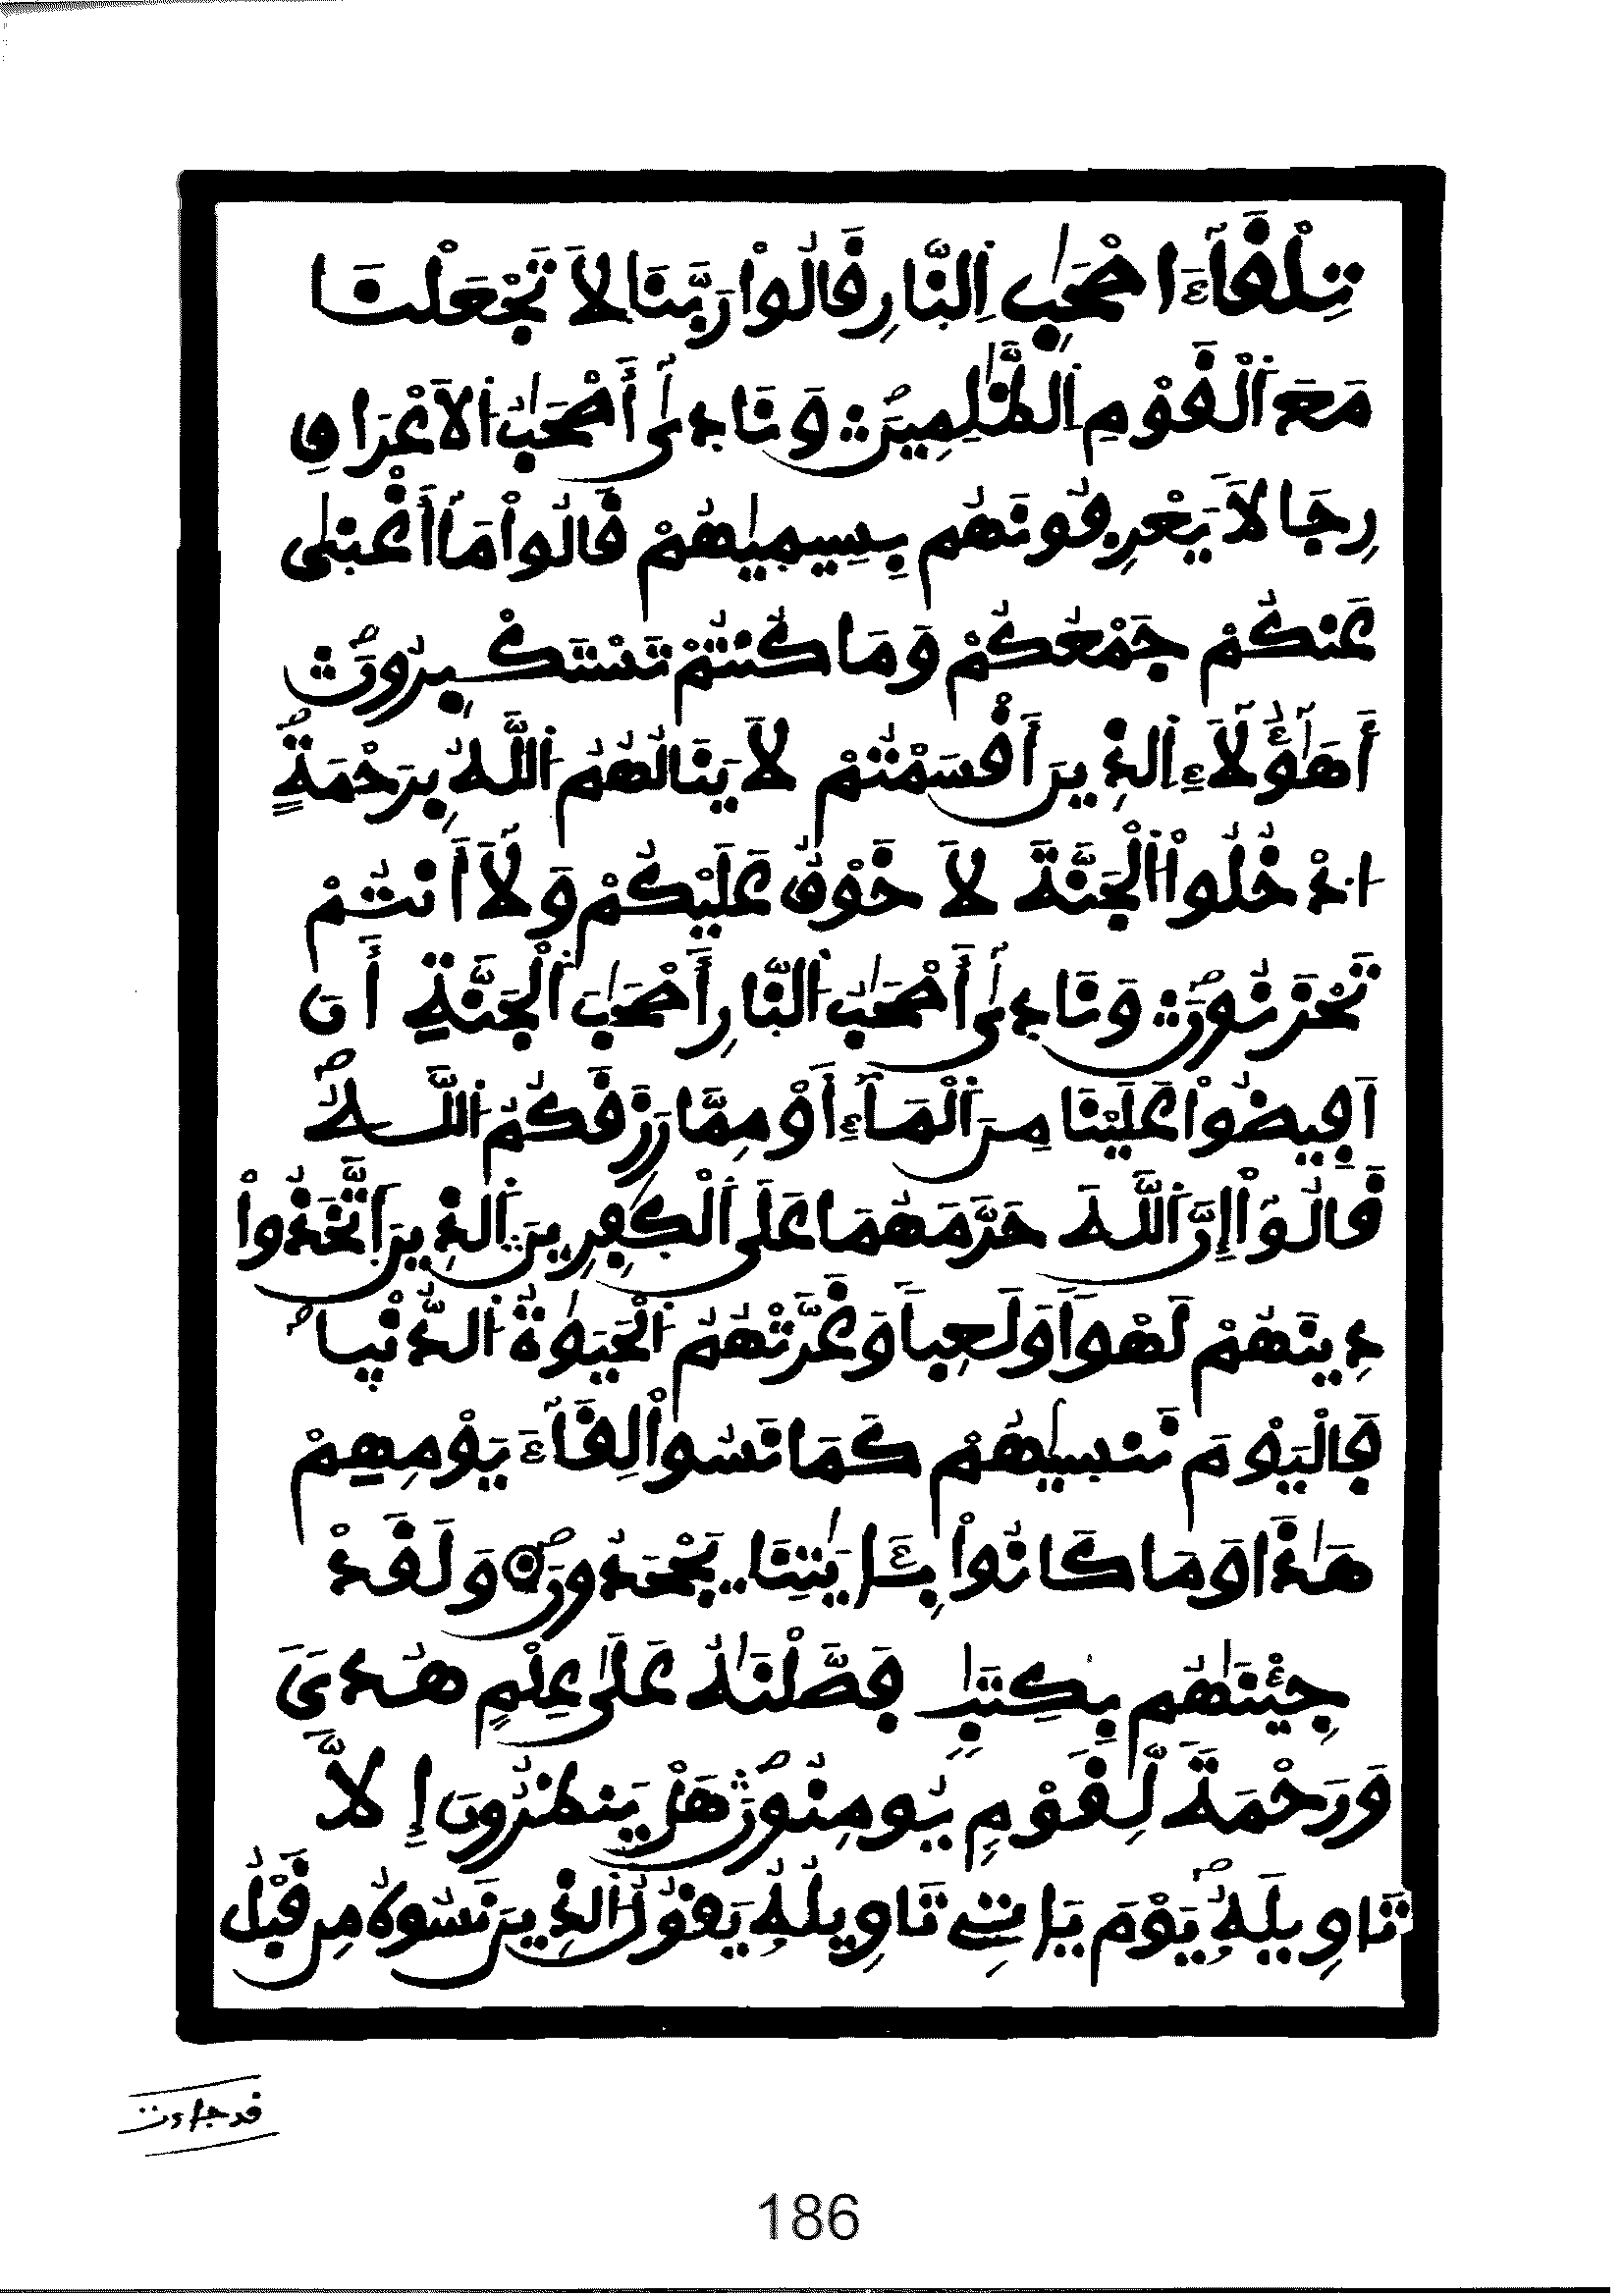 تِلْفَآءَ اصْحَٰبِ اِ۬لنّ۪ارِ فَالُواْ رَبَّنَا لَا تَجْعَلْنَا
مَعَ اَ۬لْفَوْمِ اِ۬لظَّٰلِمِينَ وَنَادٜىٰٓ أَصْحَٰبُ اُ۬لَاعْرَافِ
رِجَالاَ يَعْرِفُونَهُم بِسِيمٜيٰهُمْ فَالُواْ مَآ أَغْنٜىٰ
عَنكُمْ جَمْعُكُمْ وَمَا كُنتُمْ تَسْتَكْبِرُونَ
أَهَٰٓؤُلَآءِ اِ۬لذِينَ أَفْسَمْتُمْ لَا يَنَالُهُمُ اُ۬للَّهُ بِرَحْمَةٍ
اُ۟دْخُلُواْ اُ۬لْجَنَّةَ لَا خَوْفٌ عَلَيْكُمْ وَلَآ أَنتُمْ
تَحْزَنُونَ وَنَادٜىٰٓ أَصْحَٰبُ اُ۬لنّ۪ارِ أَصْحَٰبَ اَ۬لْجَنَّةِ أَنَ
اَفِيضُواْ عَلَيْنَا مِنَ اَ۬لْمَآءِ اَوْ مِمَّا رَزَفَكُمُ اُ۬للَّهُ
فَالُوٓاْ إِنَّ اَ۬للَّهَ حَرَّمَهُمَا عَلَى اَ۬لْكٰ۪فِرِينَ اَ۬لذِينَ اَ۪تَّخَذُواْ
دِينَهُمْ لَهْواٗ وَلَعِباٗ وَغَرَّتْهُمُ اُ۬لْحَيَوٰةُ اُ۬لدُّنْي۪ا
فَالْيَوْمَ نَنسٜيٰهُمْ كَمَا نَسُواْ لِفَآءَ يَوْمِهِمْ
هَٰذَا وَمَا كَانُواْ بِـَٔايَٰتِنَا يَجْحَدُونَ وَلَفَدْ
جِئْنَٰهُم بِكِتَٰبٖ فَصَّلْنَٰهُ عَلَىٰ عِلْمٍ هُديَ
وَرَحْمَةٗ لِّفَوْمٖ يُومِنُونَ هَلْ يَنظُرُونَ إِلاَّ
تَاوِيلَهُۥ يَوْمَ يَاتِے تَاوِيلُهُۥ يَفُولُ اُ۬لذِينَ نَسُوهُ مِن فَبْلُ
فد جاءت
186